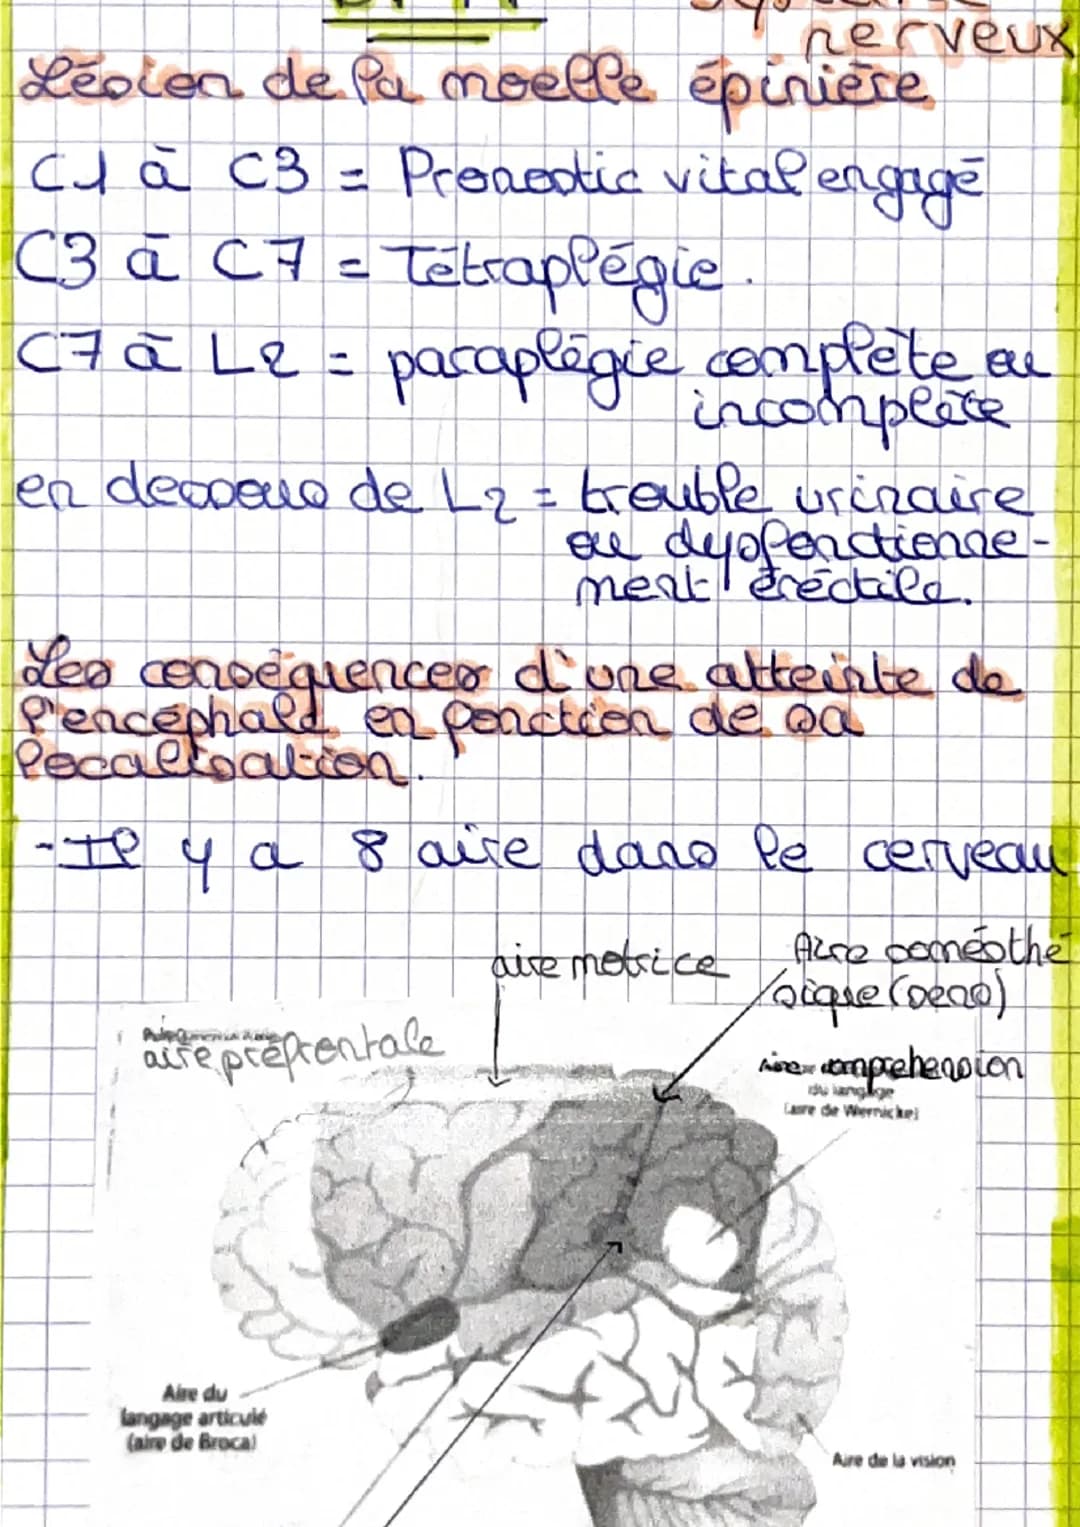 nerveux
Lésion de la moelle épinière
C1 à C3 = Pronostic vital engagé
C3 à C7 = Tétraplégie.
C7 à L2 = paraplégie complète ou
incomplète
en dessous de L2 = trouble urinaire
ou dysfonctionne-
ment éréctile.
Les conséquences d'une atteinte de
l'encéphald en fonction de sa
localisation.
-Il y a 8 aire dans le cerveau
aire motrice
Aire soméothé
sique (sens)
aire préfrontale
Aire compréhension
du langage
(aire de Wernicke)
Aire du
langage articulé
(aire de Broca)
Aire de la vision